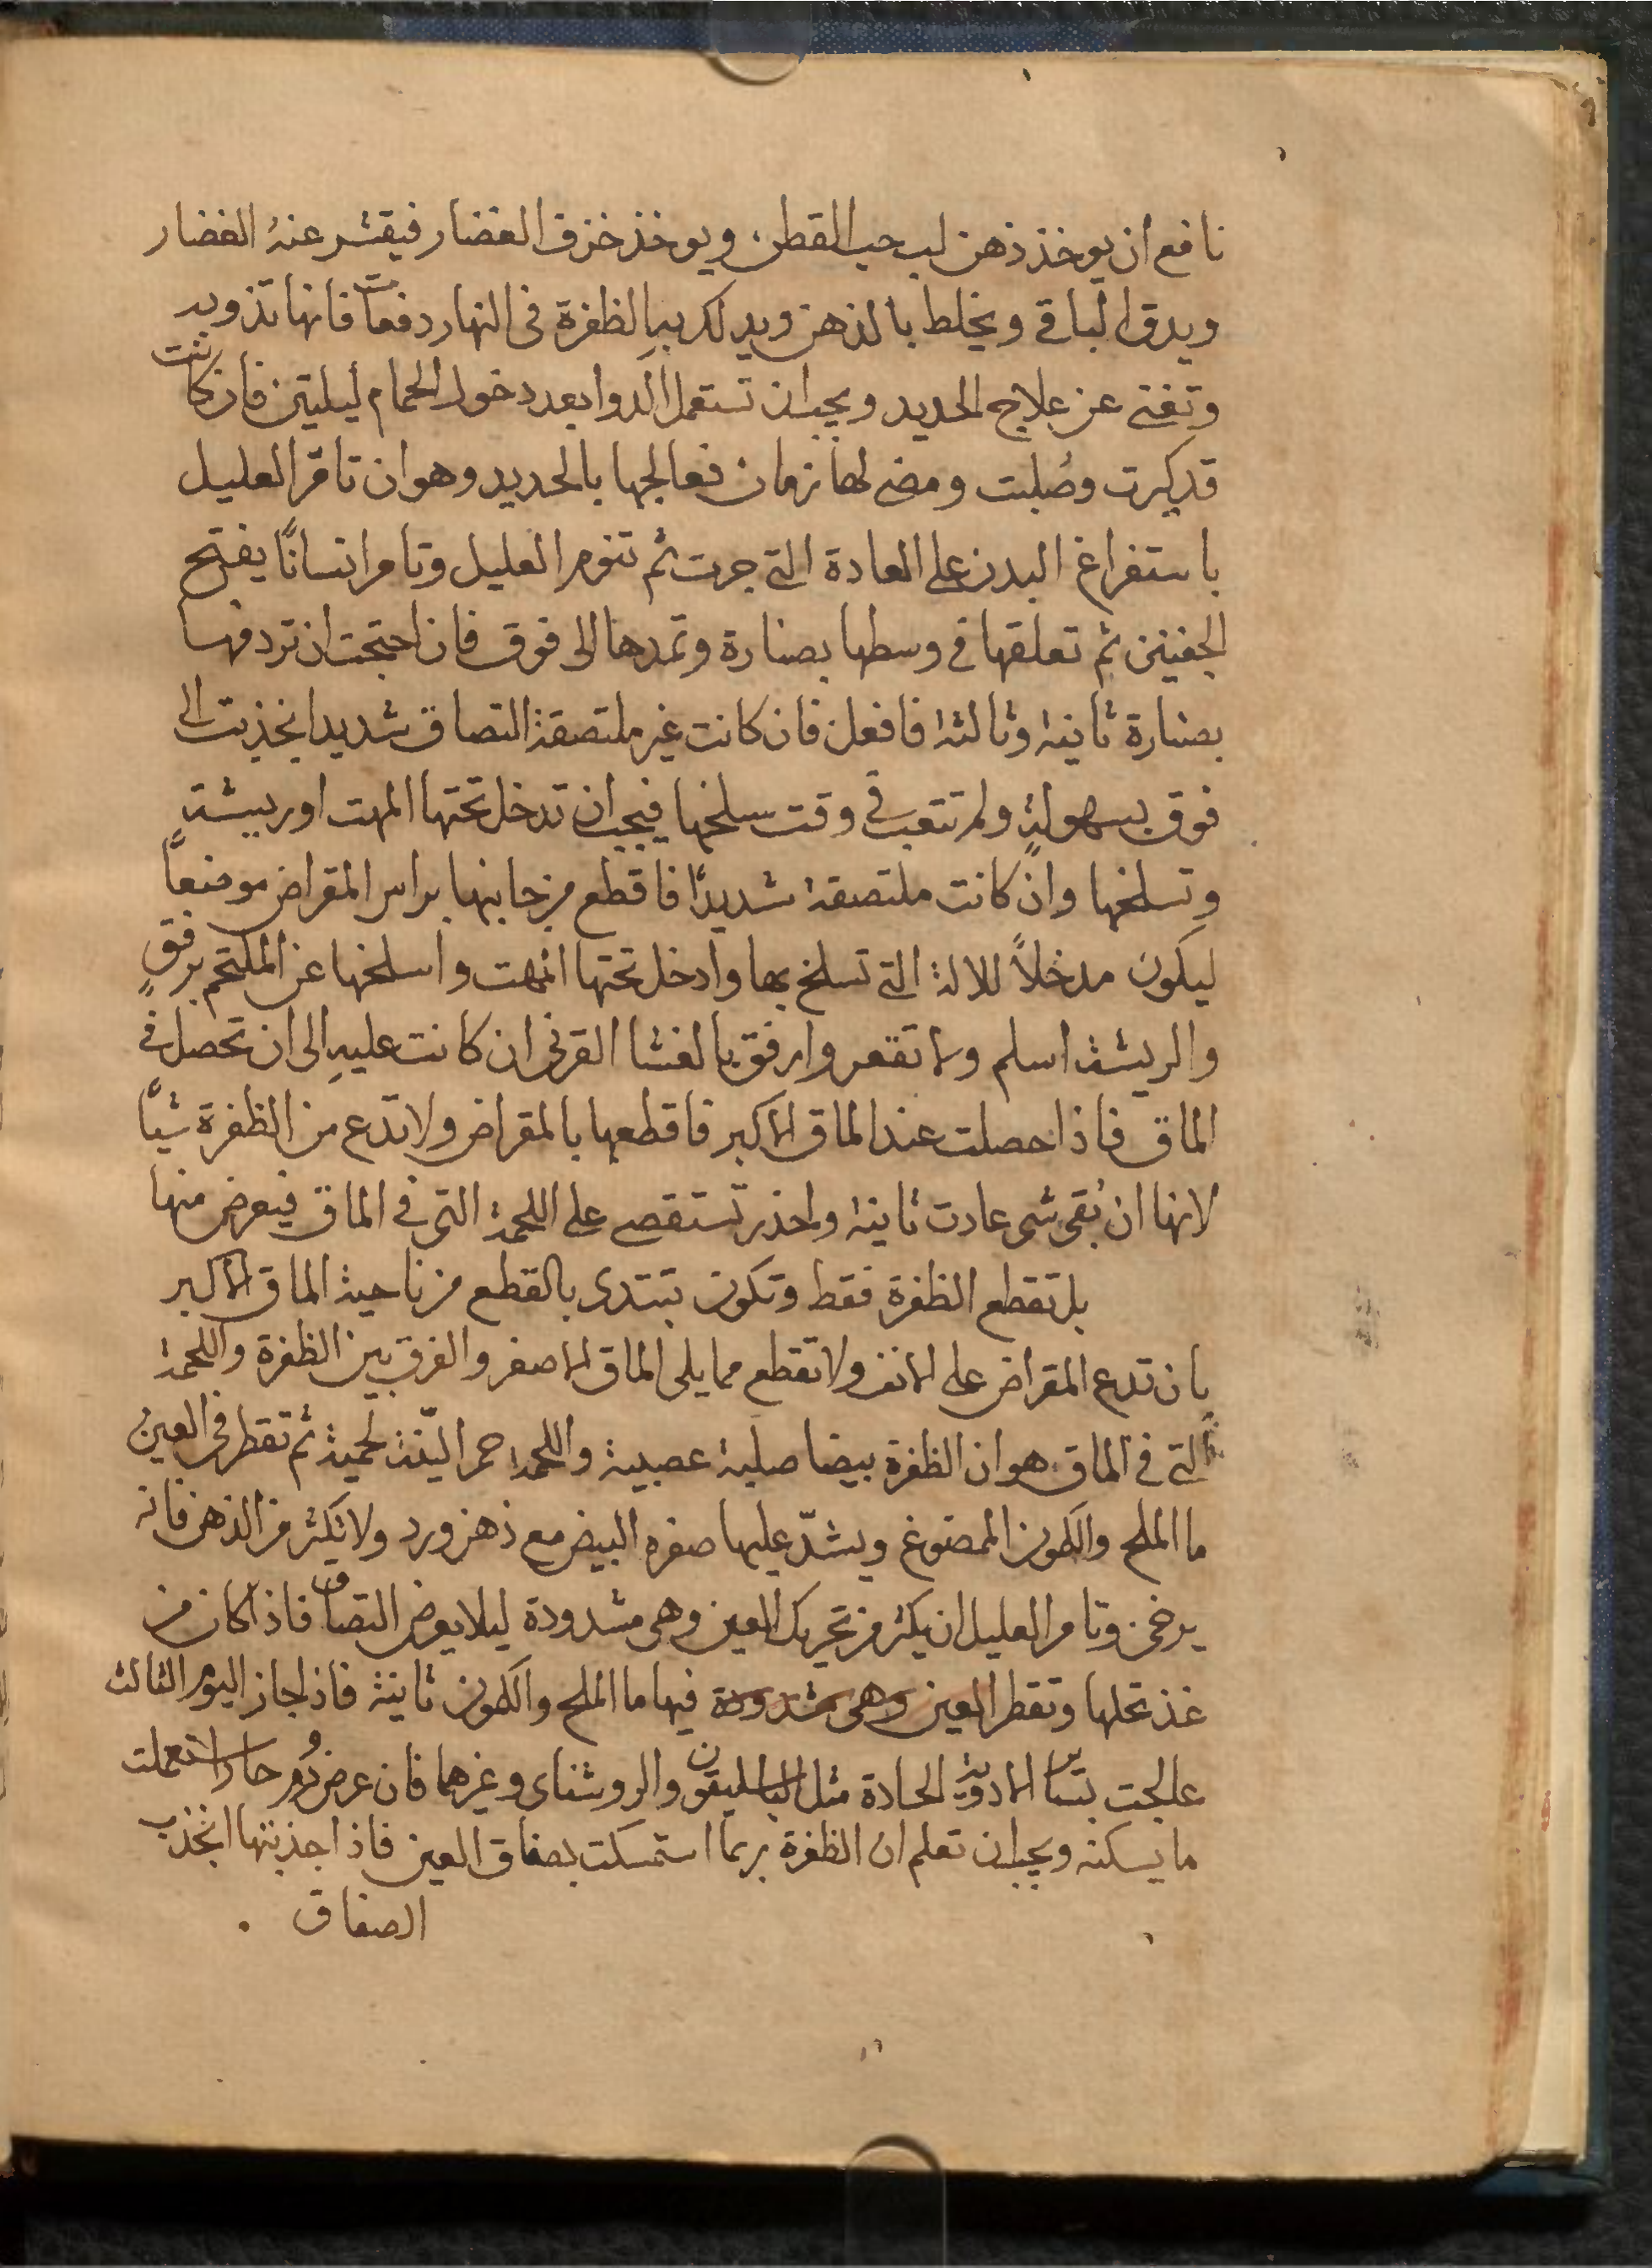 نافع ان يوخذ ذهن لب حب القطن ويوخذ خزف الغضار فيقشر عنه الغضار
ويدق الباقي ويخلط بالذهن ويدلك به الظفرة فى النهار دفعات فانها تذوب
وتغنى عن علاج الحديد ويجب ان تستعمل الدوا بعد دخول الحمام ليلتين فان كانت
قد كبرت وصُلبت ومضى لها زمان فعالجها بالحديد وهو ان تامر العليل
باستفراغ البدن على العادة التى جرت ثم تنوم العليل وتامر انسانًا يفتح
الجفنين ثم تعلقها فى وسطها بصنارة وتمدها الى فوق فان احتجت ان تردفها
بصنارة ثانية وثالثة فافعل فان كانت غير ملتصقة التصاق شديدا انجذبت الى
فوق بسهولةٍ ولم تتعب فى وقت سلخها فيجب ان تدخل تحتها المهت او ريشة
وتسلخها وان كانت ملتصقة شديدًا فاقطع من جانبها براس المقراض موضعًا
ليكون مدخلاً للالة التى تسلخ بها وادخل تحتها المهت واسلخها عن الملتحم برفقٍ
والريشة اسلم ولا تقعر وارفق بالغشا القرنى ان كانت عليه الى ان تحصل فى
الماق فاذا حصلت عند الماق الاكبر فاقطعها بالمقراض ولا تدع من الظفرة شيًا
لانها ان بُقى شى عادت ثانية واحذر تستقصى على اللحمة التى فى الماق فيعرض منها
بل تقطع الظفرة فقط وتكون تبتدى بالقطع من ناحية الماق الاكبر
بان تدع المقراض على الانف ولا تقطع مما يلى الماق الاصغر والفرق بين الظفرة واللحمة
التى فى الماق هو ان الظفرة بيضا صلبة عصبية واللحمة حمرا ليّنة لحمية ثم تقطر فى العين
ما الملح والكمون الممضوغ ويشدّ عليها صفره البيض مع ذهن ورد ولا تكثر من الذهن فانه
يرخى وتامر العليل ان يكثر من تحريك العين وهى مشدودة ليلا يعرض التصاق فاذا كان من
غذ تحلها وتقطر العين وهى مشدودة فيها ما الملح والكمون ثانية فاذا جاز اليوم الثالث
عالجت بتس الادوية الحادة مثل الباسليقون والروشناى وغيرهما فان عرض ورم حار استعملت
ما يسكنه ويجب ان تعلم ان الظفرة ربما استمسكت بصفاق العين فاذا جذبتها انجذب
الصفاق